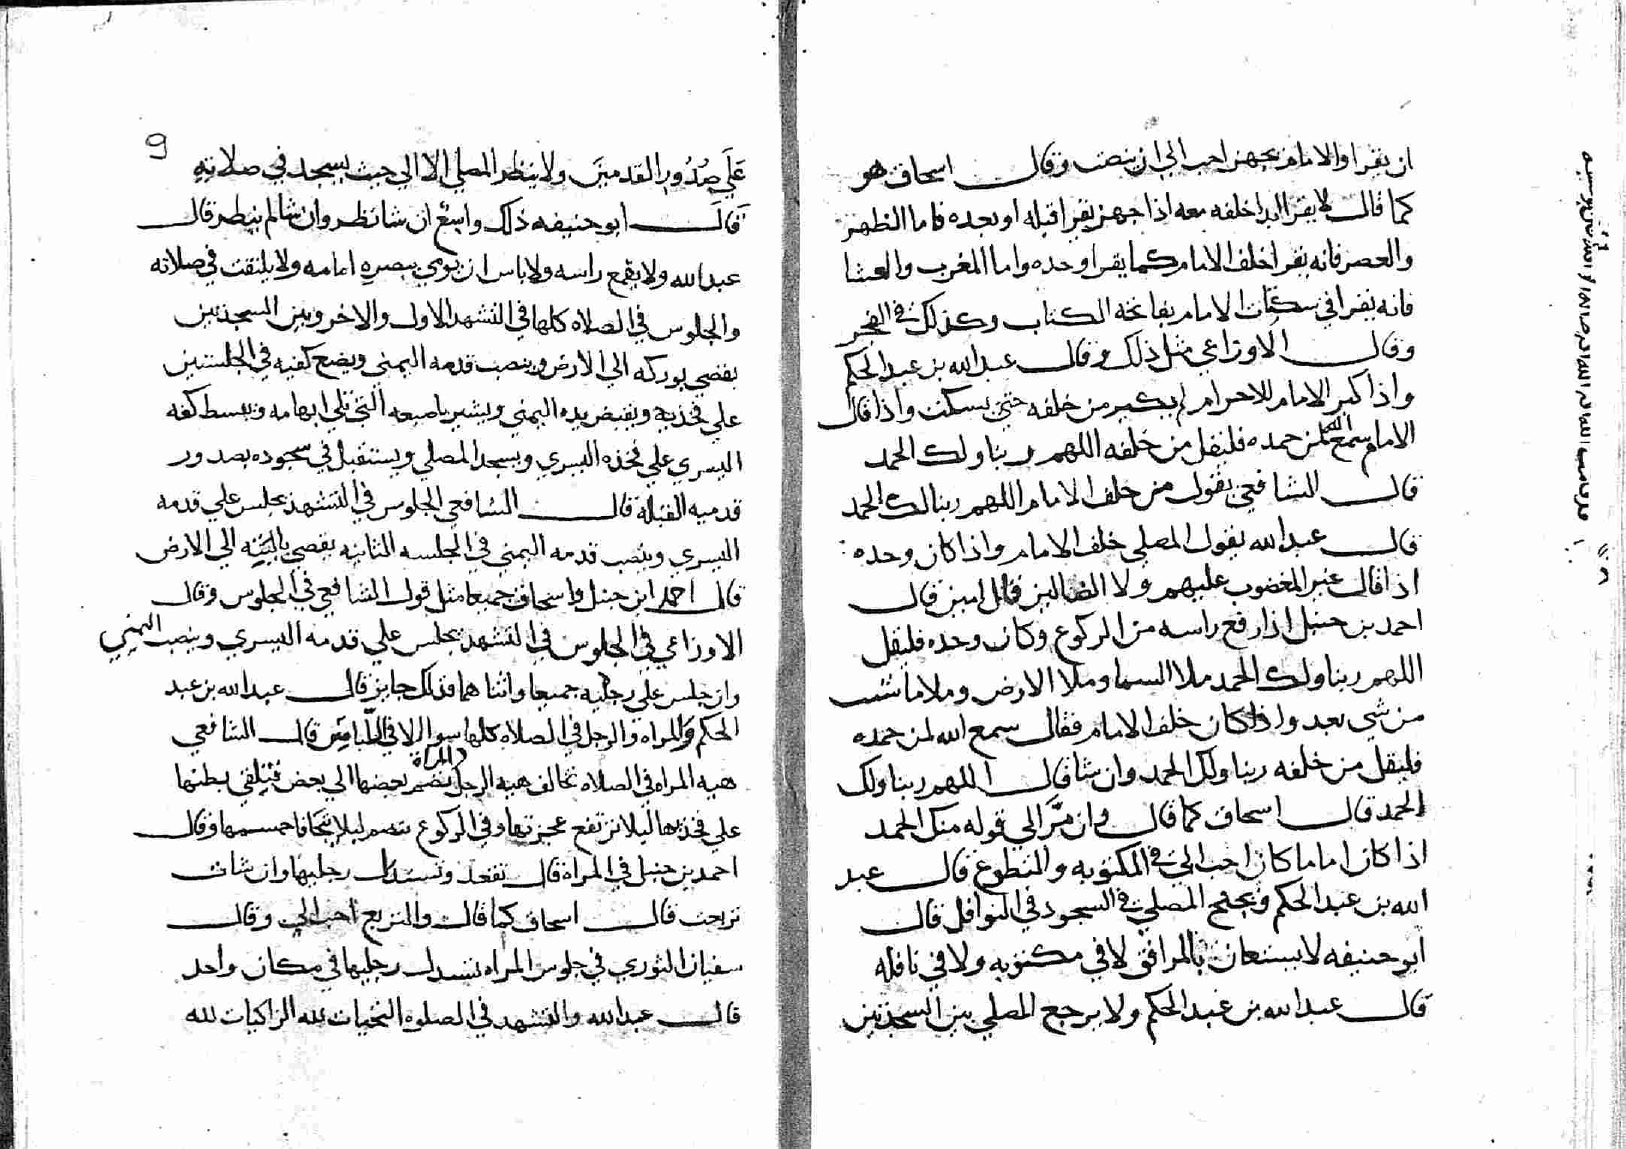 ان يقرا والامام يجهر احب الي ان ينصت وقال اسحاق هو
كما قال لا يقرا ابدا خلفه معه اذا جهر يقرا قبله او بعده فاما الظهر
والعصر فانه يقرا خلف الامام كما يقرا وحده واما المغرب والعشا
فانه يقرا في سكتات الامام بفاتحة الكتاب وكذلك في الفجر
وقال الاوزاعي مثل ذلك وقال عبد الله بن عبد الحكم
واذا كبر الامام للاحرام لم يكبر من خلفه حتى يسكت واذا قال
الامام سمع الله لمن حمده فليقل من خلفه اللهم ربنا ولك الحمد
قال الشافعي يقول من خلف الامام اللهم ربنا لك الحمد
قال عبد الله يقول المصلي خلف الامام واذا كان وحده
اذا قال غير المغضوب عليهم ولا الضالين قال امين قال
احمد بن حنبل اذا رفع راسه من الركوع وكان وحده فليقل
اللهم ربنا ولك الحمد ملا السما وملا الارض وملا ما شئت
من شي بعد واذا كان خلف الامام فقال سمع الله لمن حمده
فليقل من خلفه ربنا ولك الحمد وان شا قال اللهم ربنا ولك
الحمد قال اسحاق كما قال وان الي قوله منك الحمد
اذا كان اماما كان احب الي في المكتوبه والتطوع قال عبد
الله بن عبد الحكم المصلي في السجود في النوافل قال
ابو حنيفه لا يستعان بالمرافق لا في مكتوبه ولا في نافله
قال عبد الله بن عبد الحكم ولا يرجع المصلي بين السجدتين
9
علي صدور القدمين ولا ينظر المصلي الا الي حيث يسجد في صلاته
قال ابو حنيفه ذلك واسع ان شا نظر وان شا لم ينظر قال
عبد الله ولا يقمع راسه ولا باس ان يومي ببصره امامه ولا يلتفت في صلاته
والجلوس في الصلاه كلها في التشهد الاول والاخر وبين السجدتين
يفضي بوركه الي الارض وينصب قدمه اليمني ويضع كفيه في الجلستين
علي فخذيه ويقبض يده اليمني ويشير باصبعه التي تلي ابهامه ويبسط كفه
اليسري علي فخذه اليسري ويسجد المصلي ويستقبل في سجوده بصدور
قدميه القبله قال الشافعي الجلوس في التشهد يجلس علي قدمه
اليسري وينصب قدمه اليمني في الجلسه الثانيه يفضي باليته الي الارض
قال احمد ابن حنبل واسحاق جميعا مثل قول الشافعي في الجلوس وقال
الاوزاعي في الجلوس في التشهد يجلس علي قدمه اليسري وينصب اليمني
وان جلس علي رجليه جميعا واثناهما فذلك جايز قال عبد الله بن عبد
الحكم والمراه والرجل في الصلاه كلها سوا الا في اللباس قال الشافعي
هيه المراه في الصلاه تخالف هيه الرجل تضم المراة بعضها الي بعض فتلقي بطنها
علي فخذيها ليلا ترتفع عجيزتها وفي الركوع تنضم ليلا يتجافا جسمها وقال
احمد بن حنبل في المراه قال تقعد وتسدل رجليها وان شات
تربعت قال اسحاق كما قال والتربع احب الي وقال
سفيان الثوري في جلوس المراه تسدل رجليها في مكان واحد
قال عبد الله والتشهد في الصلوه التحيات لله الزاكيات لله